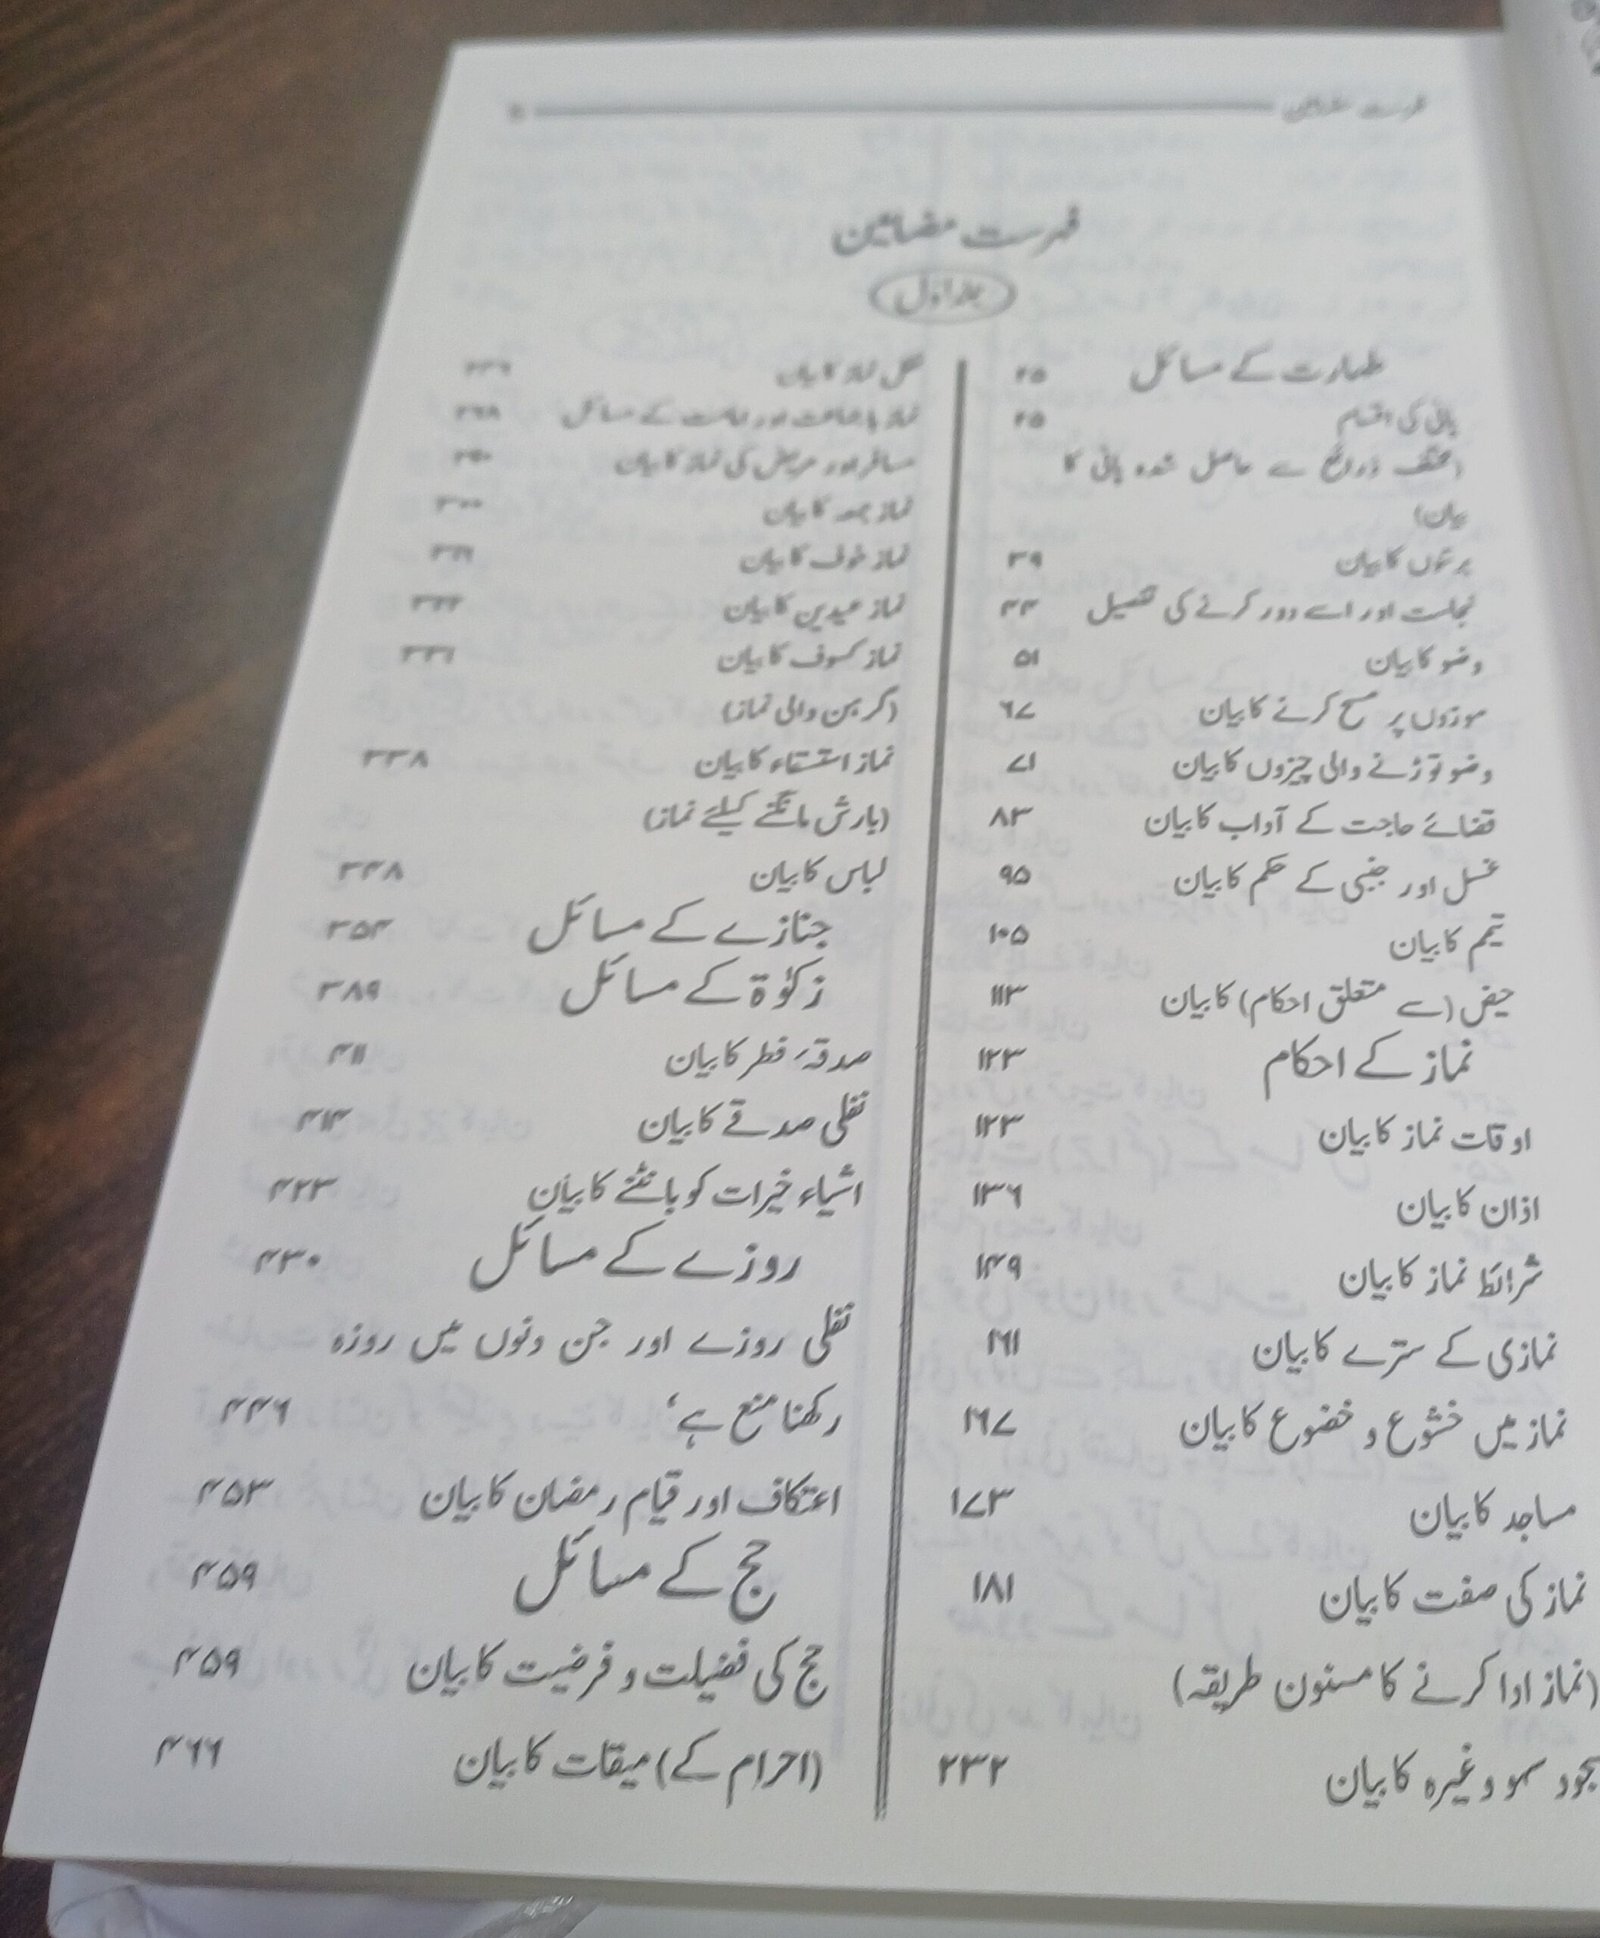 فہرست مضامین
فہرست مضامین
جلد اول
طہارت کے مسائل ۲۵
پانی کی اقسام ۲۵
(مختلف ذرائع سے حاصل شدہ پانی کا
بیان)
برتنوں کا بیان ۳۹
نجاست اور اسے دور کرنے کی تفصیل ۴۴
وضو کا بیان ۵۱
موزوں پر مسح کرنے کا بیان ۶۷
وضو توڑنے والی چیزوں کا بیان ۷۱
قضائے حاجت کے آداب کا بیان ۸۳
غسل اور جنبی کے حکم کا بیان ۹۵
تیمم کا بیان ۱۰۵
حیض (سے متعلق احکام) کا بیان ۱۱۳
نماز کے احکام ۱۲۳
اوقات نماز کا بیان ۱۲۳
اذان کا بیان ۱۳۶
شرائط نماز کا بیان ۱۴۹
نمازی کے سترے کا بیان ۱۶۱
نماز میں خشوع و خضوع کا بیان ۱۶۷
مساجد کا بیان ۱۷۳
نماز کی صفت کا بیان ۱۸۱
(نماز ادا کرنے کا مسنون طریقہ)
سجود سہو وغیرہ کا بیان ۲۳۲
نفل نماز کا بیان
نماز باجماعت اور امامت کے مسائل ۲۶۸
مسافر اور مریض کی نماز کا بیان
نماز جمعہ کا بیان ۳۰۰
نماز خوف کا بیان
نماز عیدین کا بیان
نماز کسوف کا بیان ۳۳۱
(گرہن والی نماز)
نماز استسقاء کا بیان ۳۳۸
(بارش مانگنے کیلئے نماز)
لباس کا بیان ۳۴۸
جنازے کے مسائل ۳۵۴
زکوٰۃ کے مسائل ۳۸۹
صدقہٴ فطر کا بیان ۴۱۱
نفلی صدقے کا بیان ۴۱۴
اشیاء خیرات کو بانٹنے کا بیان ۴۲۳
روزے کے مسائل ۴۳۰
نفلی روزے اور جن دنوں میں روزہ
رکھنا منع ہے، ۴۴۶
اعتکاف اور قیام رمضان کا بیان ۴۵۳
حج کے مسائل ۴۵۹
حج کی فضیلت و فرضیت کا بیان ۴۵۹
(احرام کے) میقات کا بیان ۴۶۶